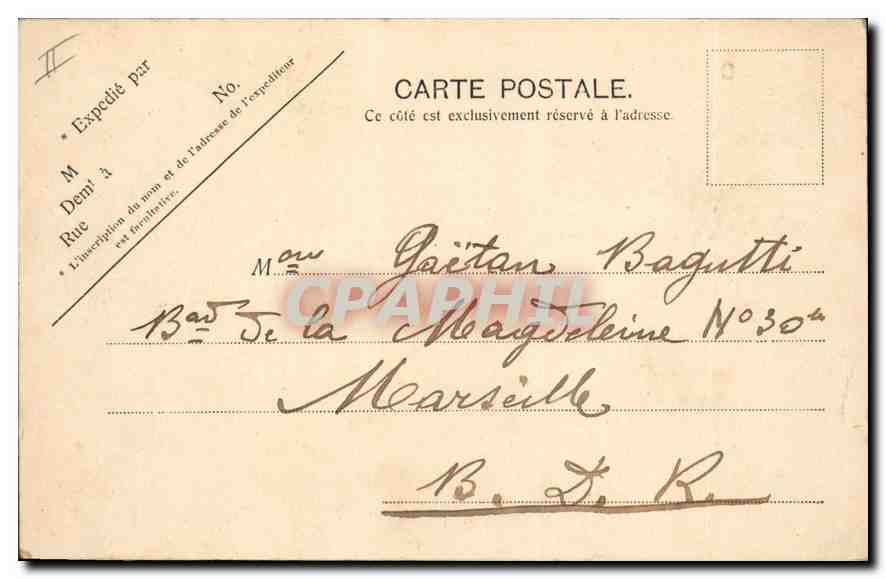 II
* Expedié par
No.
M
Dem! à
Rue
* L'inscription du nom et de l'adresse de l'expediteur
est facultative.
CARTE POSTALE.
Ce côté est exclusivement réservé à l'adresse.
M Gaëtan Bagutti
CPAPHIL
Bard de la Magdeleine No 30
Marseille
B. D. R.